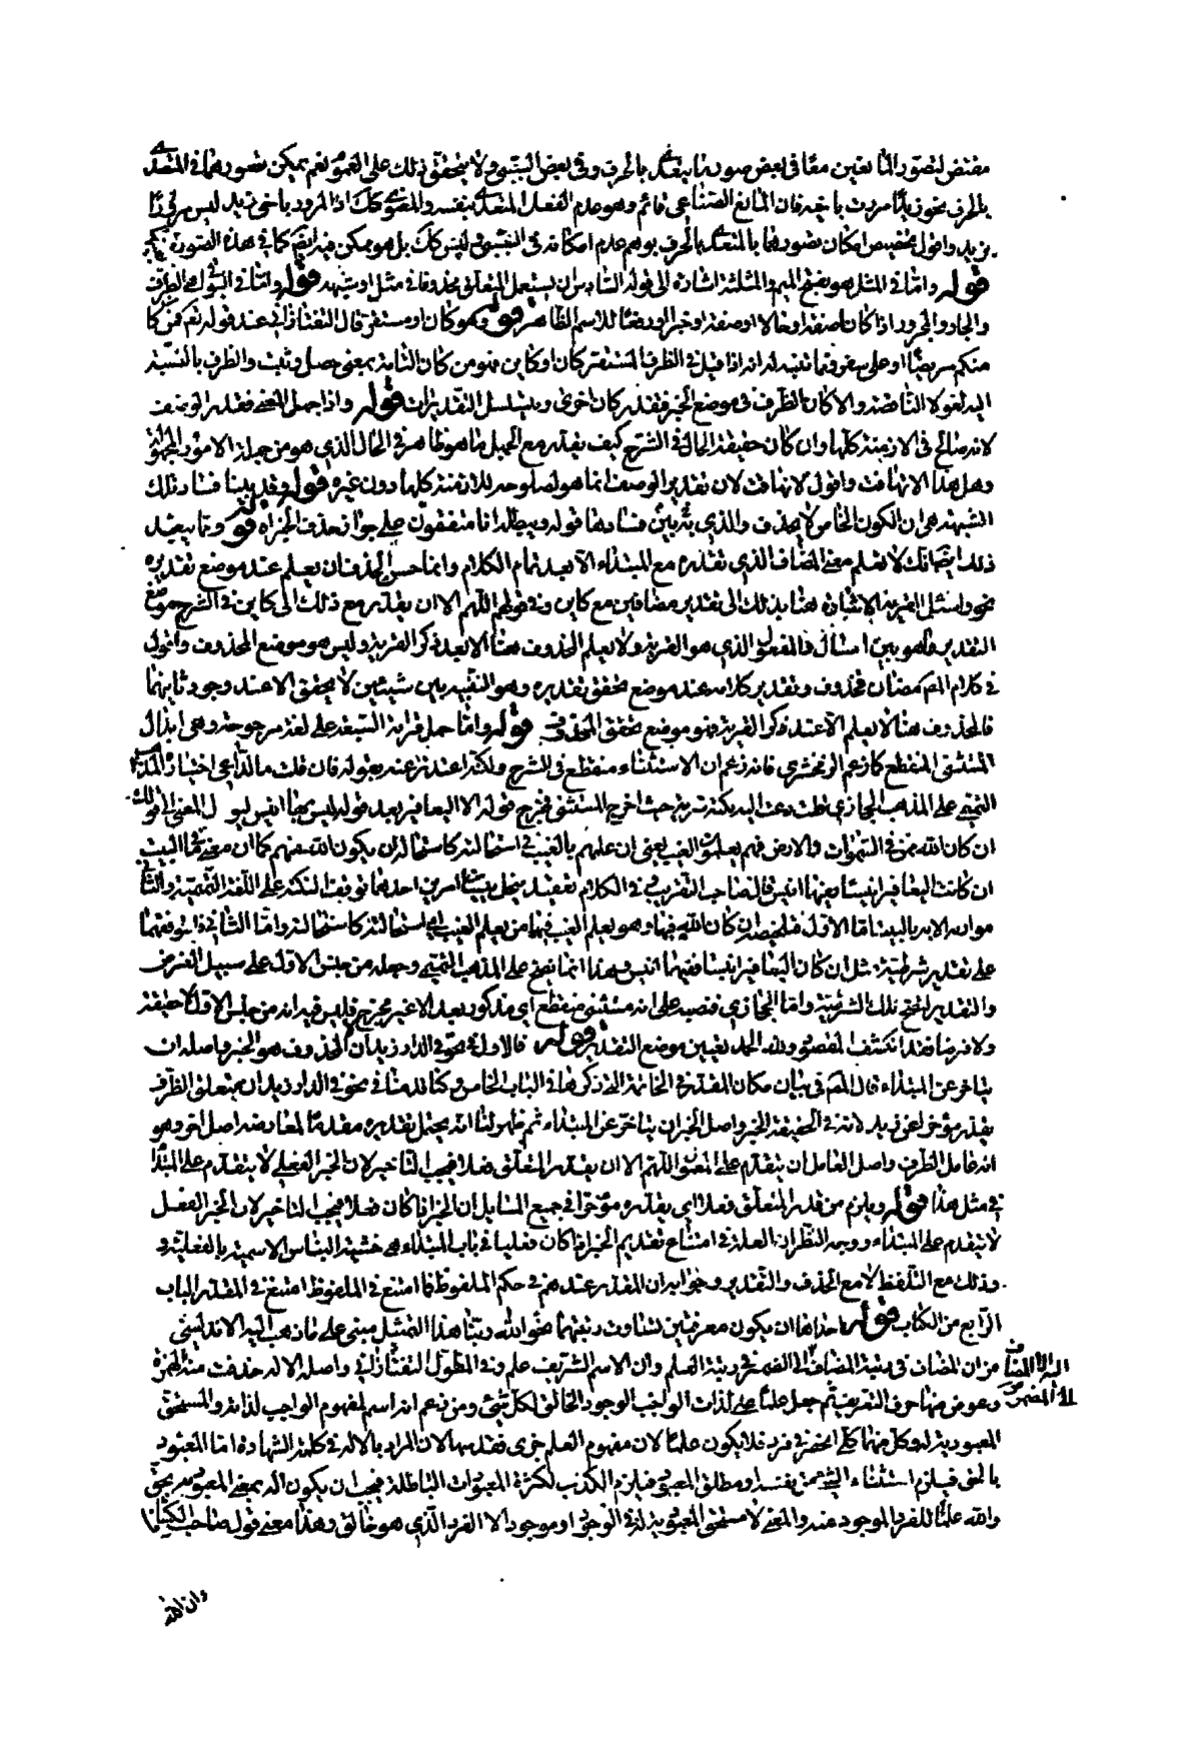 مقتض لتصور المانعين معا فى بعض صور ما يتعدى بالحرف وفى بعض السببى ولا يتحقق ذلك على العموم نعم يمكن تصورهما فى المتعدى
بالحرف نحو زيدا مررت باخيه فان المانع الصناعى قائم وهو عدم الفعل المتعدى بنفسه والمعنوى كذلك اذ المرور باخى زيد ليس مرورا
بزيد واقول تخصيص امكان تصورهما بالمتعدى بالحرف يوهم عدم امكانه فى السببى وليس كذلك بل هو ممكن فيه ايضا كما فى هذه الصورة
قوله واما فى المثل هو بضم الميم والمثلثة اشارة الى قوله السادس ان يستعمل المتعلق محذوفا فى مثل او شبهه قوله واما فى البواقى الظرف
والجار والمجرور اذا كانا صفة او حالا او صلة او خبرا او رفعا للاسم الظاهر قوله وهو كائن او مستقر قال التفتازانى عند قوله تع فمن كان
منكم مريضا او على سفر ومما تنبه له انه اذا قيل فى الظرف المستقر كان او كاين فهو من كان التامة بمعنى حصل وثبت والظرف بالنسبة
اليه لغو لا الناقصة والا كان الظرف فى موضع الخبر فيقدر كان اخرى ويتسلسل التقديرات قوله واذا جهل المعنى فقدر الوصف
لانه صالح فى الازمنة كلها وان كان حقيقة الحال فى الشرح كيف يقدر مع الجهل ما هو ظاهر فى الحال الذى هو من جملة الامور المجهولة
وهل هذا الا تهافت واقول لا تهافت لان تقدير الوصف انما هو لصلوحه للازمنة كلها دون غيره قوله وقد بينا فساد تلك
الشبهة هى ان الكون الخاص لا يحذف والذى بين فسادها قوله ويبطله انا متفقون على جواز حذف الخبر اه قوله ومما يبعد
ذلك ايضا انك لا تعلم معنى المضاف الذى تقدره مع المبتداء الا بعد تمام الكلام وانما حسن الحذف ان يعلم عند موضع تقديره
نحو واسئل القرية الاشارة هنا بذلك الى تقدير مضافين مع كاين فى قولهم اللهم الا ان يقدر مع ذلك الى كاين فى الشرح موضع
التقدير ما هو بين اسئال والمفعول الذى هو القرية ولا يعلم المحذوف هنا الا بعد ذكر القرية وليس هو موضع المحذوف واقول
فى كلام المص مضاف محذوف وتقدير كلامه عند موضع تحقق تقديره وهو التقييد بين شيئين لا يتحقق الا عند وجود ثانيهما
فالمحذوف هنا لا يعلم الا عند ذكر القرية فهو موضع تحقق الحذف قوله واما حمل قراءة السبعة على لغة مرجوحة وهى ابدال
المستثنى المنقطع كما زعم الزمخشرى فانه زعم ان الاستثناء منقطع فى الشرح ولكنه اعتذر عنه بقوله فان قلت ما الداعى اختيار المذهب
التميمى على المذهب الحجازى قلت دعت اليه نكتة سرية حيث اخرج المستثنى مخرج قوله الا اليعافير بعد قوله ليس بها انيس ليؤول المعنى الى قولك
ان كان الله ممن فى السموات والارض فهم يعلمون الغيب يعنى ان علمهم بالغيب فى استحالته كاستحالة ان يكون الله منهم كما ان معنى ما فى البيت
ان كانت اليعافير انيسا ففيها انيس قال صاحب التقريب فى الكلام تعقيد ينحل ببيان امرين احدهما توقف النكتة على اللغة التميمية والثانى
موارد الابه بالبيت اما الاول فملخصه ان كان الله فيها وهو يعلم الغيب ففيها من يعلم الغيب اى استحالته كاستحالته واما الثانى فذا توقفهما
على تقدير شرطية مثل ان كان اليعافير انيسا ففيها انيس وهذا انما يصح على المذهب التميمى وجعله من جنس الاول على سبيل الفرض
والتقدير لتصح تلك الشرطية واما الحجازى فنصبه على انه مستثنى منقطع اى مذكور بعد الا غير مخرج فليس فيه انه من جنس الاول لا حقيقة
ولا فرضا فقد انكشف المقصود ولله الحمد تعيين موضع التقدير قوله فالاولى نحو فى الدار زيد ان المحذوف هو الخبر واصله ان
يتاخر عن المبتداء قال المص فى بيان مكان المقدر فى الخاتمة التى ذكرها فى الباب الخامس وكنا قدمنا فى نحو فى الدار زيد ان متعلق الظرف
يقدر مؤخرا عن زيد لانه فى الحقيقة الخبر واصل الخبر ان يتاخر عن المبتداء ثم ظهر لنا انه يحتمل تقديره مقدما لمعارضة اصل اخر وهو
انه عامل الظرف واصل العامل ان يتقدم على المعمول اللهم الا ان يقدر المتعلق فعلا فيجب التاخير لان الخبر الفعلى لا يتقدم على المبتدا
فى مثل هذا قوله ويلزم من قدر المتعلق فعلا اى يقدره مؤخرا فى جميع المسايل ان الخبر اذا كان فعلا فيجب التاخير لان الخبر الفعل
لا يتقدم على المبتداء ووجه النظر ان العلة فى امتناع تقديم الخبر اذا كان فعليا فى باب المبتداء هى خشية التباس الاسمية بالفعلية و
وذلك مع التلفظ لا مع الحذف والتقدير وجوابه ان المقدر عندهم فى حكم الملفوظ فما امتنع فى الملفوظ امتنع فى المقدر الباب
الرابع من الكتاب قوله احداها ان يكون معرفتين تساوت رتبتهما نحو الله ربنا هذا التمثيل مبنى على ما ذهب اليه الاندلسى
من ان المضاف فى رتبة المضاف اليه الا المضاف الى المضمر فهو فى رتبة العلم وان الاسم الشريف علم وفى المطول للتفتازانى واصله الاله حذفت منه الهمزة
وعوض منها حرف التعريف ثم جعل علما على لذات الواجب الوجود الخالق لكل شئ ومن زعم انه اسم لمفهوم الواجب لذاته والمستحق
للعبودية له وكل منهما كلى انحصر فى فرد فلا يكون علما لان مفهوم العلم جزى فقد سها لان المراد بالاله فى كلمة الشهادة اما المعبود
بالحق فيلزم استثناء الشئ من نفسه او مطلق المعبود فيلزم الكذب لكثرة المعبودات الباطلة فيجب ان يكون اله بمعنى المعبود بحق
والله علما للفرد الموجود منه والمعنى لا مستحق للعبودية له فى الوجود او موجود الا الفرد الذى هو خالق وهذا معنى قول صاحب الكشاف
وان الله